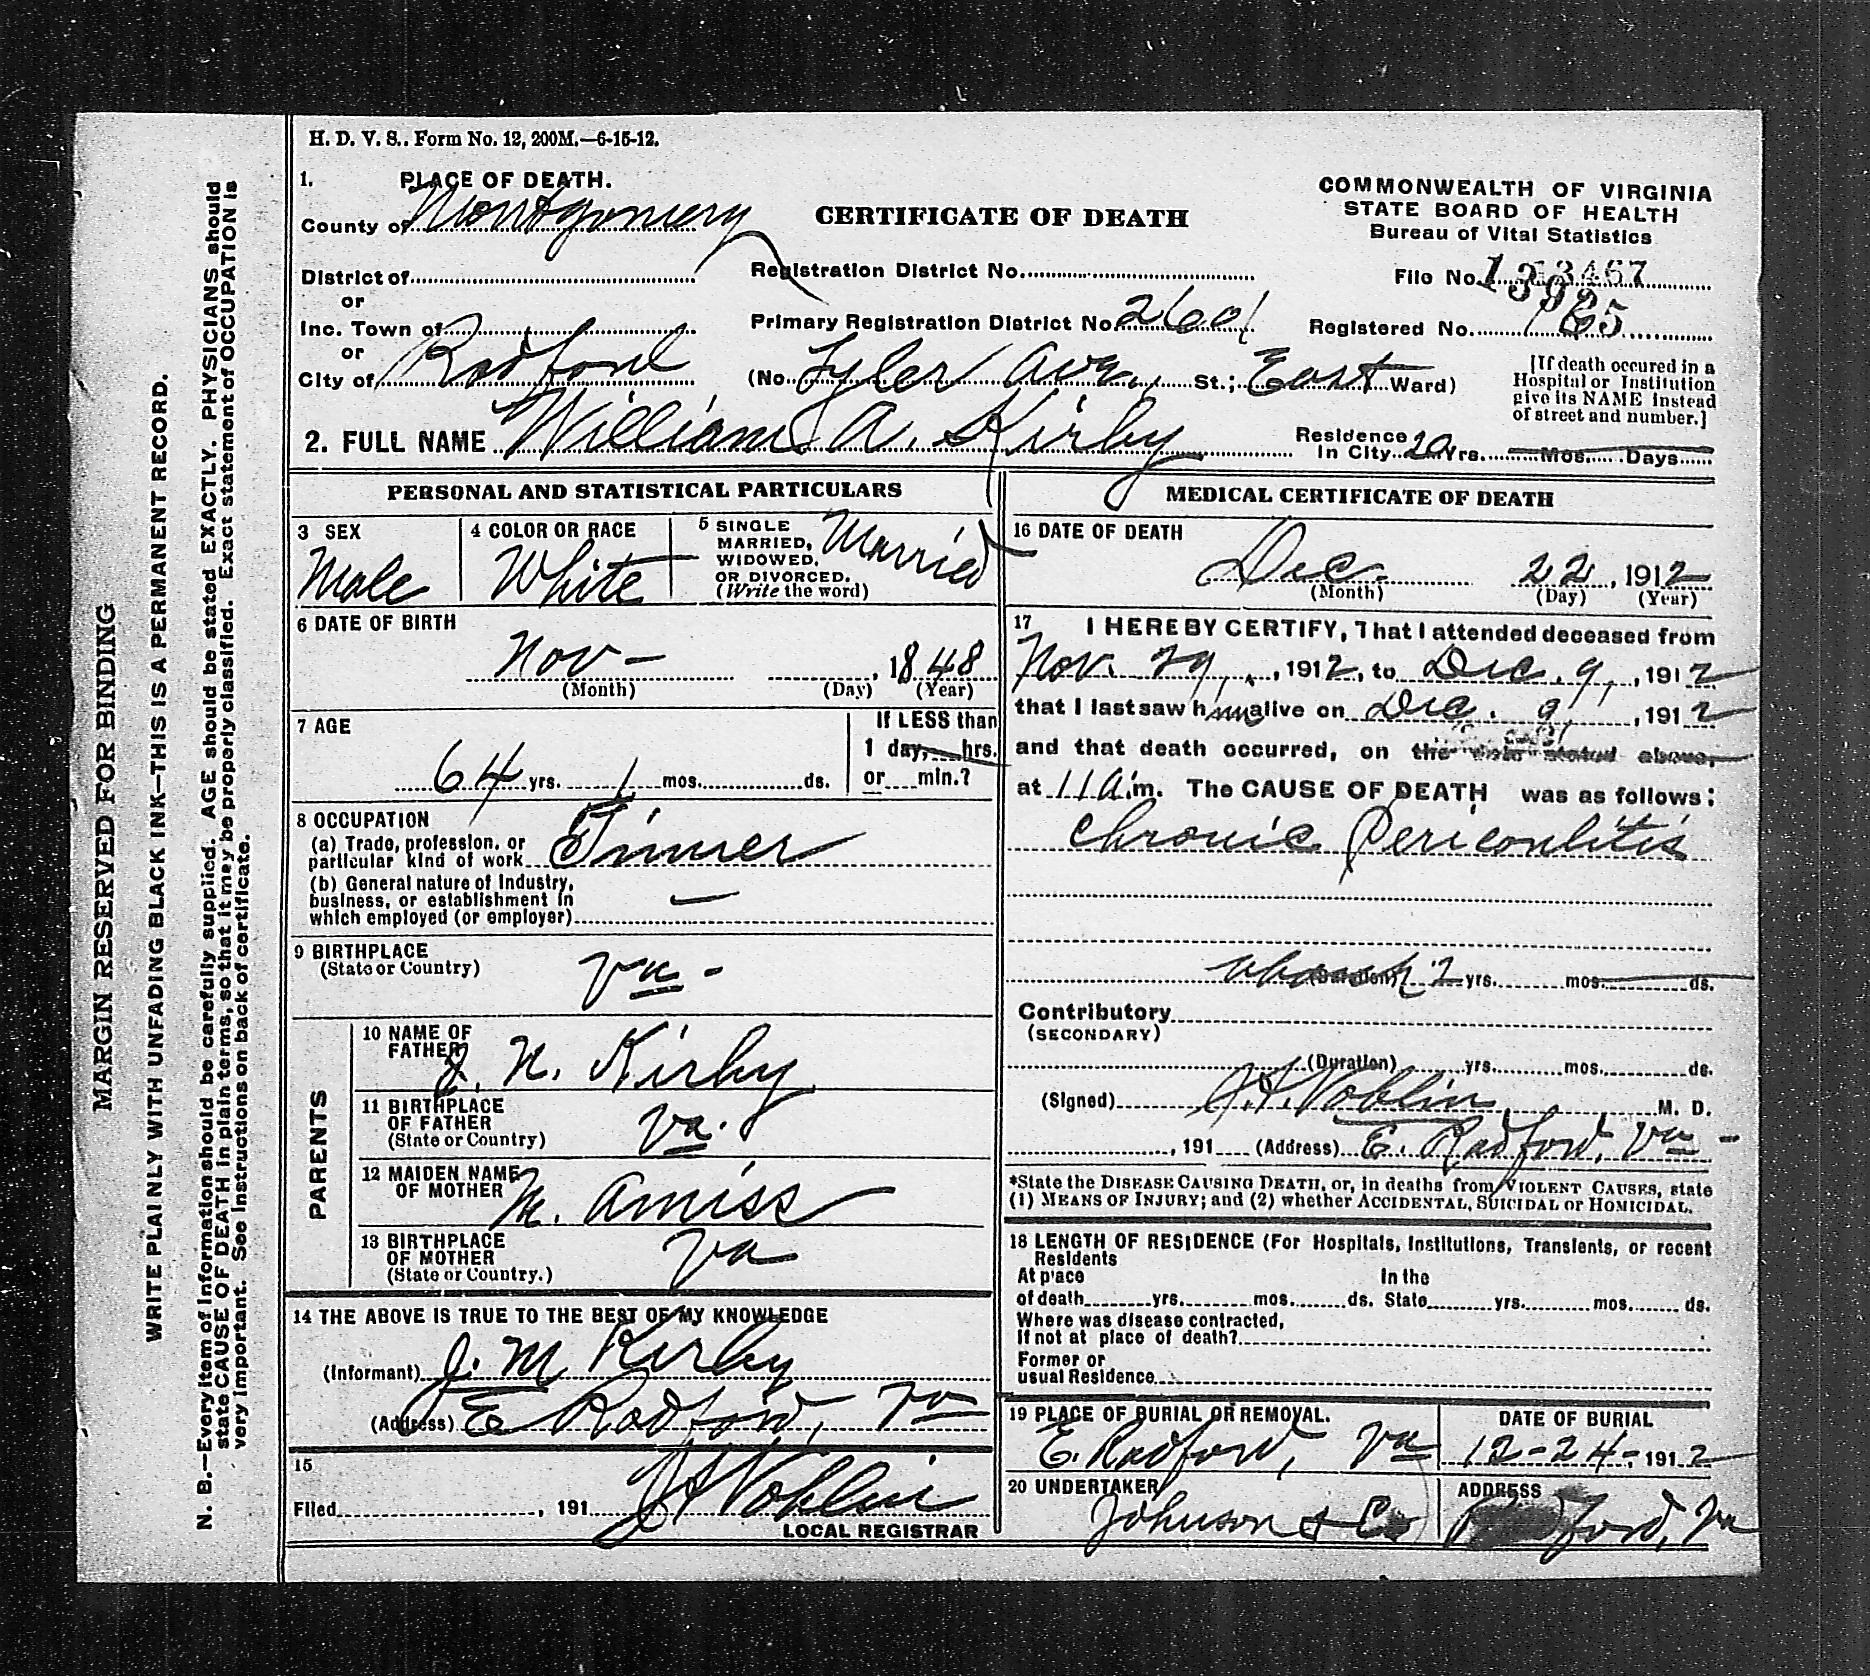 H. D. V. S.. Form No. 12, 200M.—6-15-12.
1. PLACE OF DEATH.
County of Montgomery
CERTIFICATE OF DEATH
COMMONWEALTH OF VIRGINIA
STATE BOARD OF HEALTH
Bureau of Vital Statistics
District of
Registration District No.
File No.
or
Inc. Town of
Primary Registration District No. 2601
Registered No.
or
City of Radford (No. Tyler Ave, St.; East Ward)
[If death occured in a
Hospital or Institution
give its NAME instead
of street and number.]
2. FULL NAME William A. Kirby
Residence
In City 20 Yrs. Mos. Days
PERSONAL AND STATISTICAL PARTICULARS
3 SEX
Male
4 COLOR OR RACE
White
5 SINGLE
MARRIED,
WIDOWED,
OR DIVORCED.
(Write the word)
Married
6 DATE OF BIRTH
Nov — , 1848
(Month) (Day) (Year)
7 AGE
64 yrs. 1 mos. ds.
If LESS than
1 day, hrs.
or min.?
8 OCCUPATION
(a) Trade, profession, or
particular kind of work Tinner
(b) General nature of Industry,
business, or establishment in
which employed (or employer) —
9 BIRTHPLACE
(State or Country) Va -
PARENTS
10 NAME OF
FATHER J. N. Kirby
11 BIRTHPLACE
OF FATHER
(State or Country) Va.
12 MAIDEN NAME
OF MOTHER M. Amiss
13 BIRTHPLACE
OF MOTHER
(State or Country.) Va
14 THE ABOVE IS TRUE TO THE BEST OF MY KNOWLEDGE
(Informant) J. M Kirby
(Address) E Radford, Va
15
Filed , 191 J A Noblin
LOCAL REGISTRAR
MEDICAL CERTIFICATE OF DEATH
16 DATE OF DEATH
Dec. 22, 1912
(Month) (Day) (Year)
17 I HEREBY CERTIFY, That I attended deceased from
Nov. 29, , 1912, to Dec. 9, , 1912
that I last saw him alive on Dec. 9, , 1912
and that death occurred, on the date stated above,
at 11 A. m. The CAUSE OF DEATH was as follows:
Chronic
(Duration) 2 yrs. mos. ds.
Contributory
(SECONDARY)
(Duration) yrs. mos. ds.
(Signed) J. A. Noblin, M. D.
, 191 (Address) E. Radford, Va -
*State the DISEASE CAUSING DEATH, or, in deaths from VIOLENT CAUSES, state
(1) MEANS OF INJURY; and (2) whether ACCIDENTAL, SUICIDAL or HOMICIDAL.
18 LENGTH OF RESIDENCE (For Hospitals, Institutions, Transients, or recent
Residents
At place In the
of death yrs. mos. ds. State yrs. mos. ds.
Where was disease contracted,
If not at place of death?
Former or
usual Residence
19 PLACE OF BURIAL OR REMOVAL.
E. Radford, Va
DATE OF BURIAL
12-24-1912
20 UNDERTAKER
Johnson & Co
ADDRESS
Radford, Va
MARGIN RESERVED FOR BINDING
WRITE PLAINLY WITH UNFADING BLACK INK—THIS IS A PERMANENT RECORD.
N. B.—Every item of Information should be carefully supplied. AGE should be stated EXACTLY. PHYSICIANS should
state CAUSE OF DEATH in plain terms, so that it may be properly classified. Exact statement of OCCUPATION is
very important. See Instructions on back of certificate.